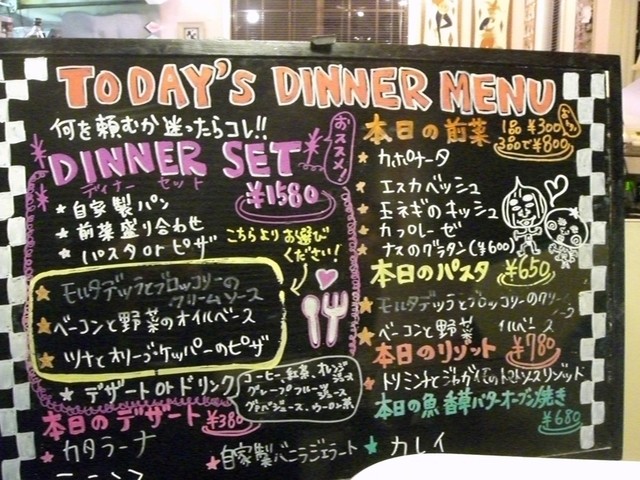 TODAY'S DINNER MENU
何を頼むか迷ったらコレ!!
DINNER SET
ディナー セット
おススメ!
¥1580
★自家製パン
★前菜盛り合わせ
★パスタorピザ
こちらよりお選び
ください!
★モルタデッラとブロッコリーの
クリームソース
★ベーコンと野菜のオイルベース
★ツナとオリーブケッパーのピザ
★デザートorドリンク
コーヒー、紅茶、オレンジ
ジュース
グレープフルーツ
ジュース
ウーロン茶
本日のデザート ¥380
カタラーナ
★自家製バニラジェラート
本日の前菜 1品¥300
3品で¥800
★カポナータ
エスカベッシュ
★玉ネギのキッシュ
★カプレーゼ
ナスのグラタン(¥600)
本日のパスタ ¥650
★モルタデッラとブロッコリーのクリー
★ベーコンと野菜 イルベース
本日のリゾット ¥780
本日の魚 香草バターオーブン焼き
¥680
★カレイ